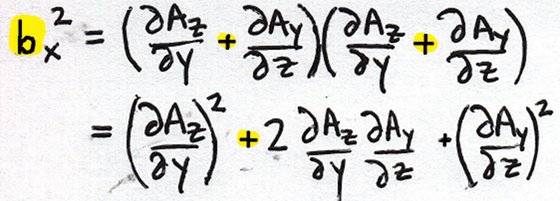 b_x^2 = (∂A_z/∂y + ∂A_y/∂z)(∂A_z/∂y + ∂A_y/∂z)
= (∂A_z/∂y)^2 + 2 ∂A_z/∂y ∂A_y/∂z + (∂A_y/∂z)^2